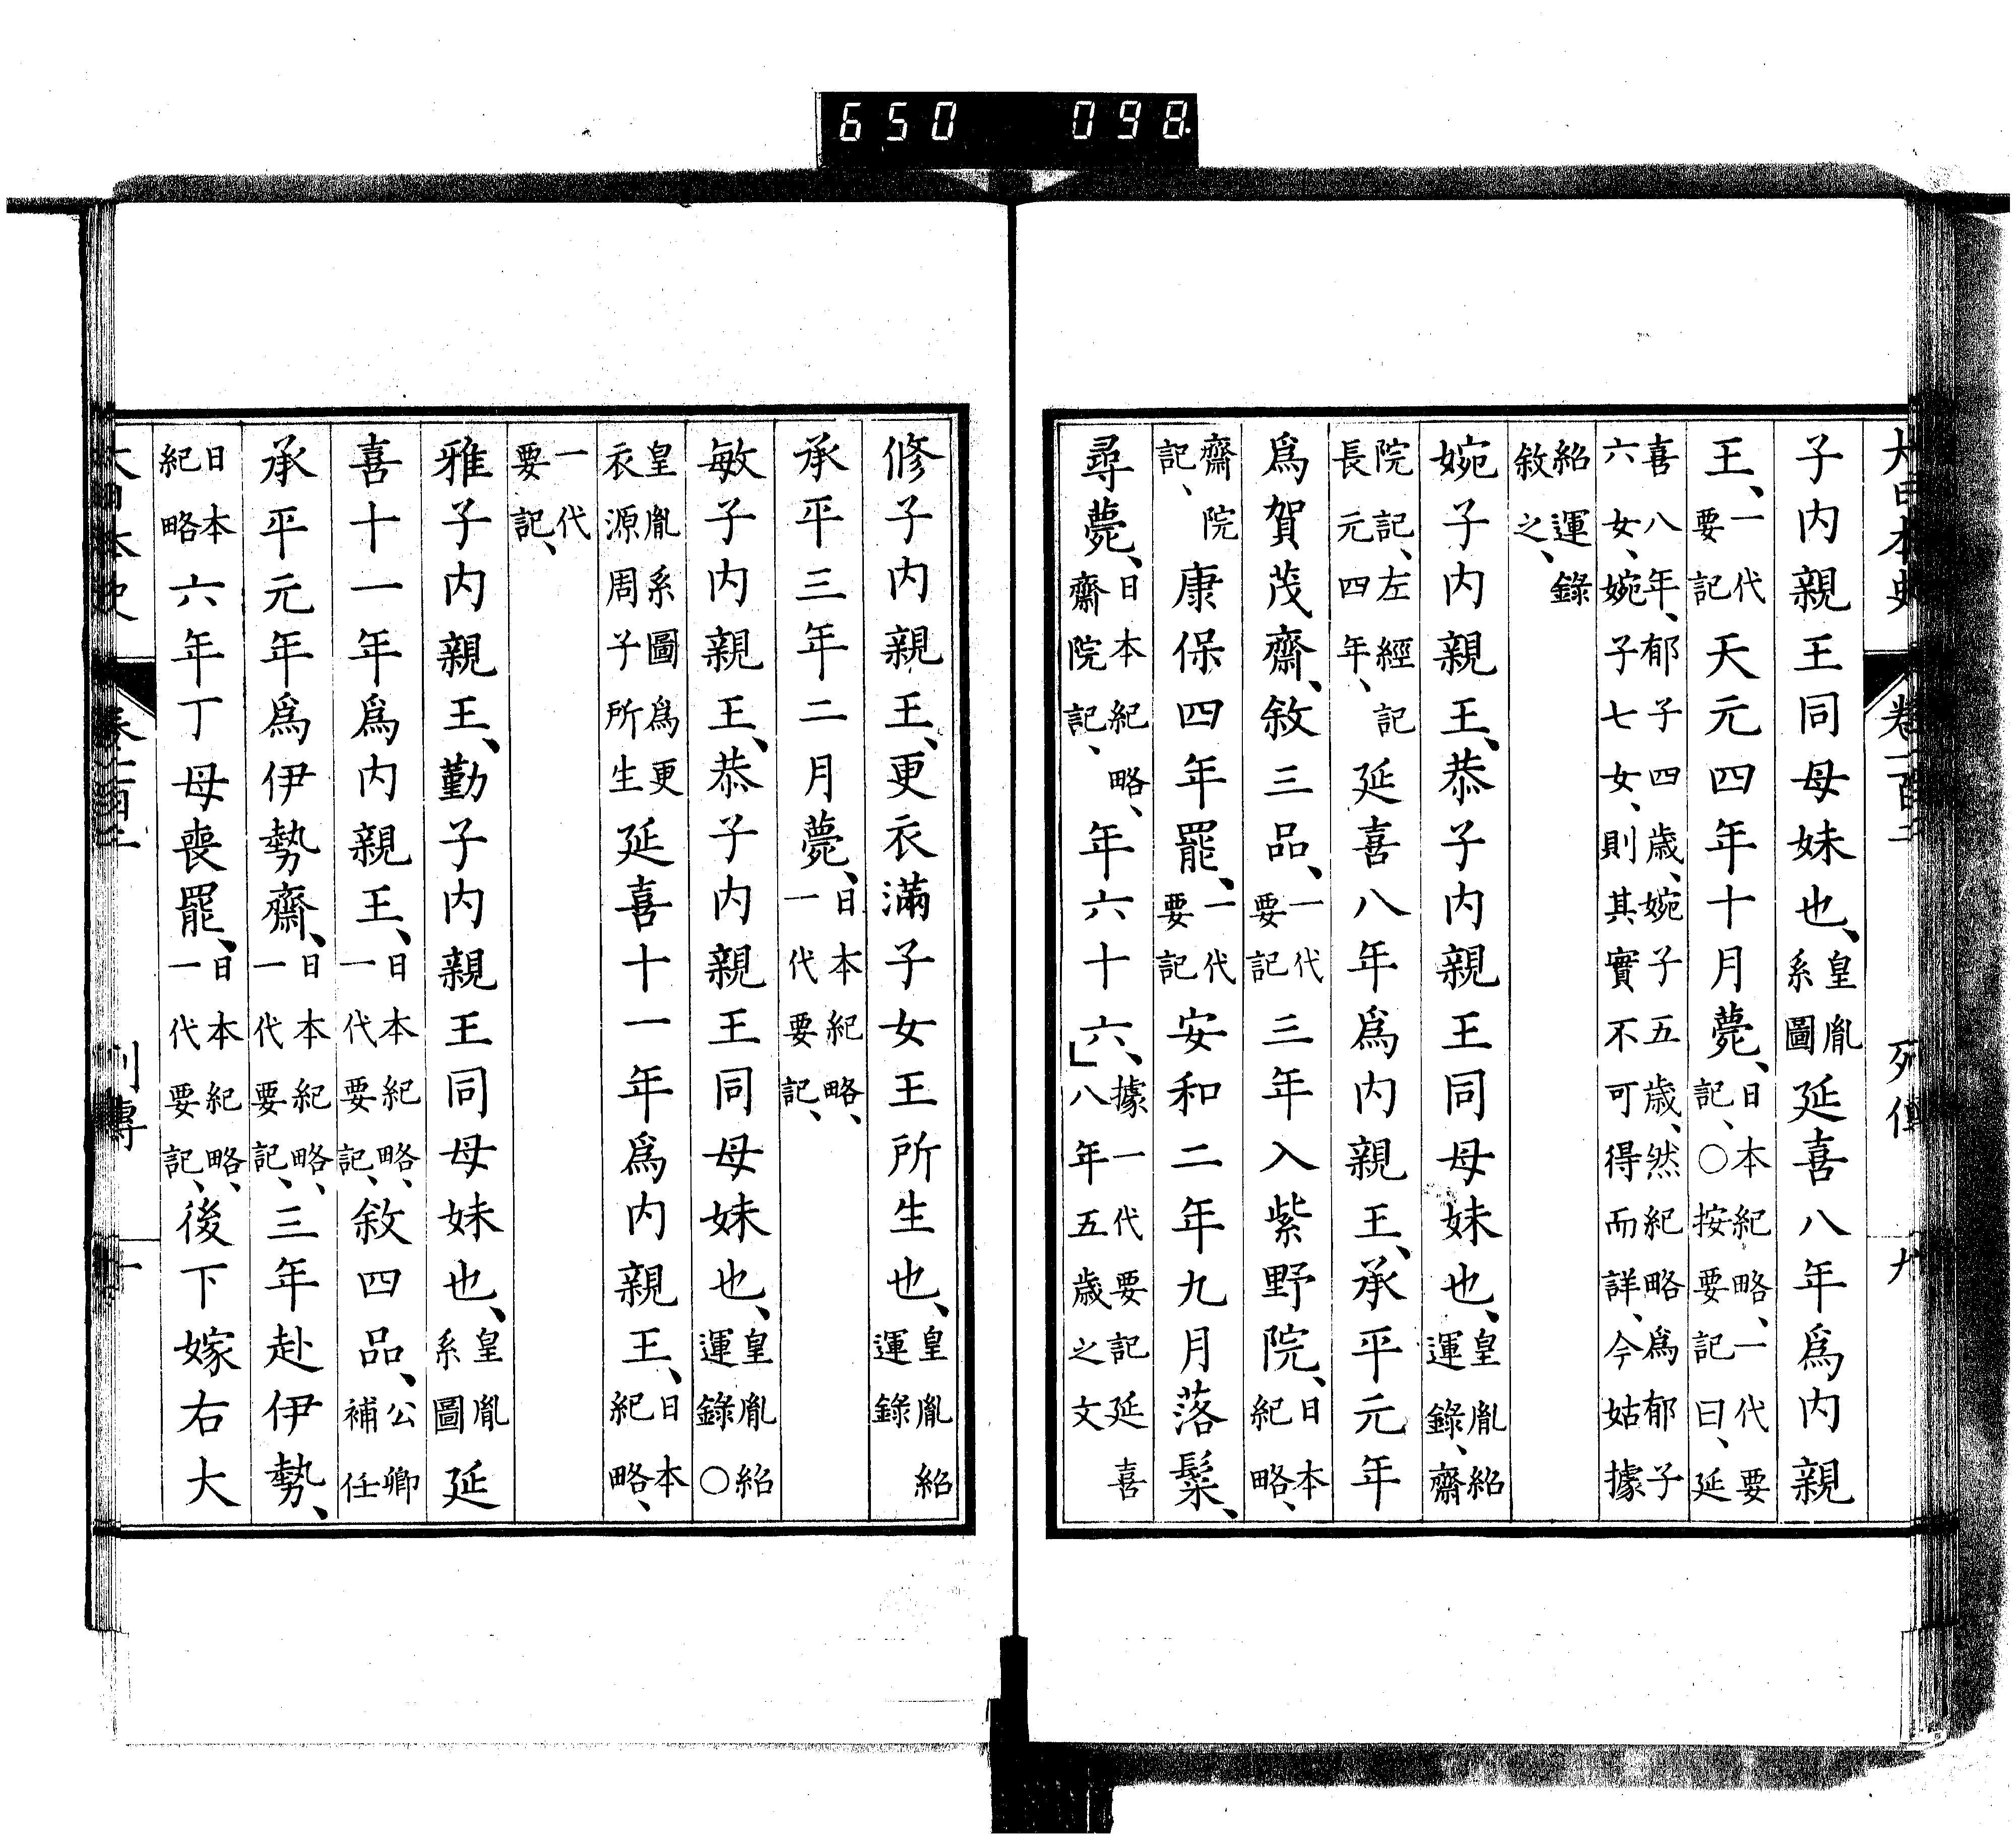 650 098
大日本史 卷一百二 列傳 九
子内親王同母妹也、皇胤系圖延喜八年爲内親
王、一代要記天元四年十月薨、日本紀略、一代要記、○按要記曰、延
喜八年、郁子四歳、婉子五歳、然紀略爲郁子六女、婉子七女、則其實不可得而詳、今姑據
紹運錄敘之、
婉子内親王、恭子内親王同母妹也、皇胤紹運錄、齋
院記、左經記長元四年、記延喜八年爲内親王、承平元年
爲賀茂齋、敘三品、一代要記三年入紫野院、日本紀略、
齋院記、康保四年罷、一代要記安和二年九月落髮、
尋薨、日本紀略、齋院記、年六十六、據一代要記延喜八年五歳之文
修子内親王、更衣滿子女王所生也、皇胤紹運錄
承平三年二月薨、日本紀略、一代要記、
敏子内親王、恭子内親王同母妹也、皇胤紹運錄○
皇胤系圖爲更衣源周子所生延喜十一年爲内親王、日本紀略、
一代要記、
雅子内親王、勤子内親王同母妹也、皇胤系圖延
喜十一年爲内親王、日本紀略、一代要記、敘四品、公卿補任
承平元年爲伊勢齋、日本紀略、一代要記、三年赴伊勢、
日本紀略六年丁母喪罷、日本紀略、一代要記、後下嫁右大
大日本史 列傳